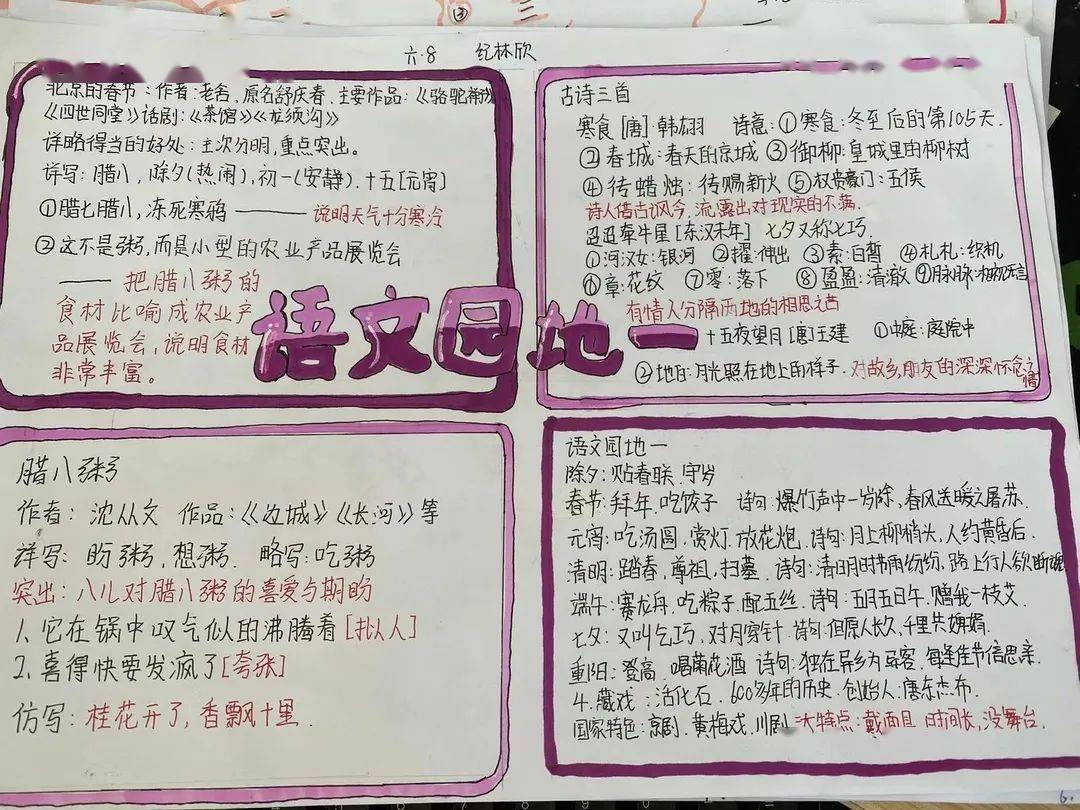 六·8 纪林欣
北京的春节:作者:老舍,原名舒庆春,主要作品:《骆驼祥子》
《四世同堂》话剧:《茶馆》《龙须沟》
详略得当的好处:主次分明,重点突出。
详写:腊八,除夕(热闹),初一(安静).十五[元宵]
①腊七腊八,冻死寒鸦——说明天气十分寒冷
②这不是粥,而是小型的农业产品展览会
——把腊八粥的
食材比喻成农业产
品展览会,说明食材
非常丰富。
语文园地一
古诗三首
寒食[唐]·韩翃 诗意:①寒食:冬至后的第105天.
②春城:春天的京城 ③御柳:皇城里的柳树
④传蜡烛:传赐新火 ⑤权贵豪门:五侯
诗人借古讽今,流露出对现实的不满.
迢迢牵牛星[东汉末年] 七夕又称七巧.
①河汉女:银河 ②擢:伸出 ③素:白皙 ④札札:织机
⑥章:花纹 ⑦零:落下 ⑧盈盈:清澈 ⑨脉脉:相视无言
有情人分隔两地的相思之苦
十五夜望月[唐]王建 ①中庭:庭院中
②地白:月光照在地上的样子.对故乡,朋友的深深怀念之情
腊八粥
作者:沈从文 作品:《边城》《长河》等
详写:盼粥,想粥. 略写:吃粥
突出:八儿对腊八粥的喜爱与期盼
1、它在锅中叹气似的沸腾着[拟人]
2.喜得快要发疯了[夸张]
仿写:桂花开了,香飘十里.
语文园地一
除夕:贴春联.守岁
春节:拜年,吃饺子 诗句:爆竹声中一岁除,春风送暖入屠苏.
元宵:吃汤圆.赏灯.放花炮.诗句:月上柳梢头,人约黄昏后.
清明:踏春,尊祖,扫墓.诗句:清明时节雨纷纷,路上行人欲断魂
端午:赛龙舟,吃粽子.配五丝.诗句:五月五日午.赠我一枝艾.
七夕:又叫乞巧,对月穿针 诗句:但愿人长久,千里共婵娟.
重阳:登高,喝菊花酒 诗句:独在异乡为异客.每逢佳节倍思亲.
4.藏戏:活化石.600多年的历史.创始人:唐东杰布.
国家特色:京剧.黄梅戏.川剧.大特点:戴面具 时间长,没舞台.